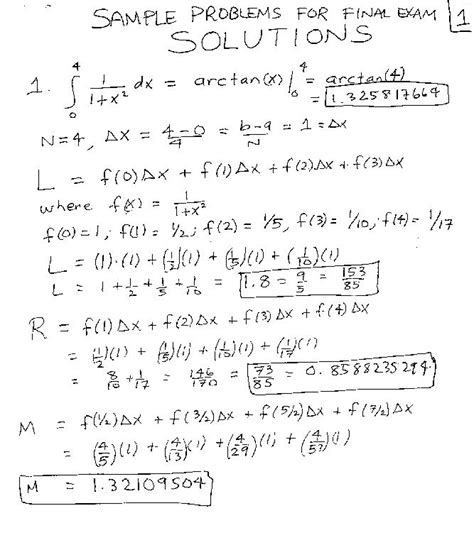 SAMPLE PROBLEMS FOR FINAL EXAM 1
SOLUTIONS
1. ∫₀⁴ 1/(1+x²) dx = arctan(x)|₀⁴ = arctan(4)
= 1.325817664
N=4, Δx = (4-0)/4 = (b-a)/N = 1 = Δx
L = f(0)Δx + f(1)Δx + f(2)Δx + f(3)Δx
where f(x) = 1/(1+x²)
f(0)=1, f(1)=1/2, f(2)=1/5, f(3)=1/10, f(4)=1/17
L = (1)·(1) + (1/2)(1) + (1/5)(1) + (1/10)(1)
L = 1 + 1/2 + 1/5 + 1/10 = 1.8 = 9/5 = 153/85
R = f(1)Δx + f(2)Δx + f(3)Δx + f(4)Δx
= (1/2)(1) + (1/5)(1) + (1/10)(1) + (1/17)(1)
= 8/10 + 1/17 = 146/170 = 73/85 = 0.8588235294
M = f(1/2)Δx + f(3/2)Δx + f(5/2)Δx + f(7/2)Δx
= (4/5)(1) + (4/13)(1) + (4/29)(1) + (4/53)(1)
M = 1.32109504